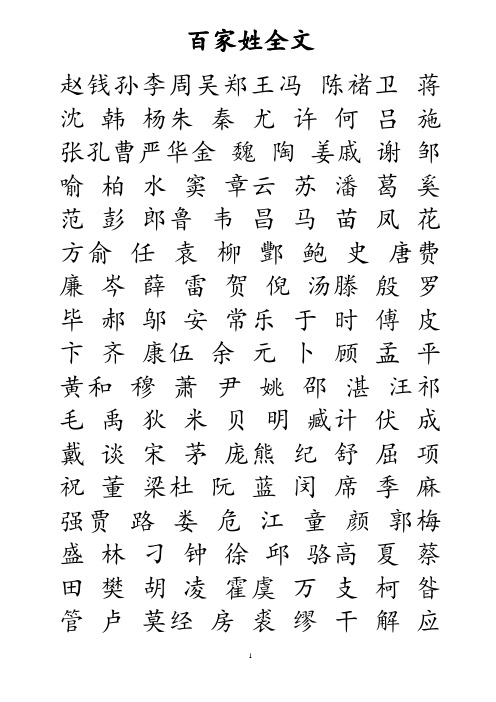 百家姓全文
赵钱孙李周吴郑王冯 陈褚卫 蒋
沈 韩 杨朱 秦 尤 许 何 吕 施
张孔曹严华金 魏 陶 姜戚 谢 邹
喻 柏 水 窦 章云 苏 潘 葛 奚
范 彭 郎鲁 韦 昌 马 苗 凤 花
方俞 任 袁 柳 酆 鲍 史 唐费
廉 岑 薛 雷 贺 倪 汤滕 殷 罗
毕 郝 邬 安 常乐 于 时 傅 皮
卞 齐 康伍 余 元 卜 顾 孟 平
黄和 穆 萧 尹 姚 邵 湛 汪祁
毛 禹 狄 米 贝 明 臧计 伏 成
戴 谈 宋 茅 庞熊 纪 舒 屈 项
祝 董 梁杜 阮 蓝 闵 席 季 麻
强贾 路 娄 危 江 童 颜 郭梅
盛 林 刁 钟 徐 邱 骆高 夏 蔡
田 樊 胡 凌 霍虞 万 支 柯 昝
管 卢 莫经 房 裘 缪 干 解 应
1